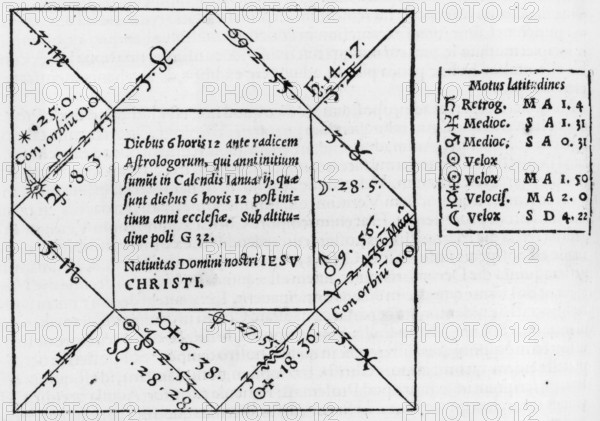 3. ♏
3. ♌
♋ 2. 53.
♄. 4. 17.
3. ♊
✴ 25. 0.
Con orbiū 0 0
♎ 2. 43
♃. 8. 3.
3. ♉
☽. 28. 5.
Diebus 6 horis 12 ante radicem
Astrologorum, qui anni initium
sumūt in Calendis Ianuarij, quæ
sunt diebus 6 horis 12 post ini-
tium anni ecclesiæ. Sub altitu-
dine poli G 32.
Natiuitas Domini nostri IESV
CHRISTI.
♂. 9. 56.
♈. 2. 43
Con orbiū 0 0
3. ♏
3. ♓
♀ 6. 38.
28. 28.
☿. 18. 36.
Motus latitudines
♄ Retrog. M A 1. 4
♃ Medioc. S A 1. 31
♂ Medioc. S A 0. 31
☉ Velox
♀ Velox M A 1. 50
☿ Velocis. M A 2. 0
☾ Velox S D 4. 22
PHOTO 12